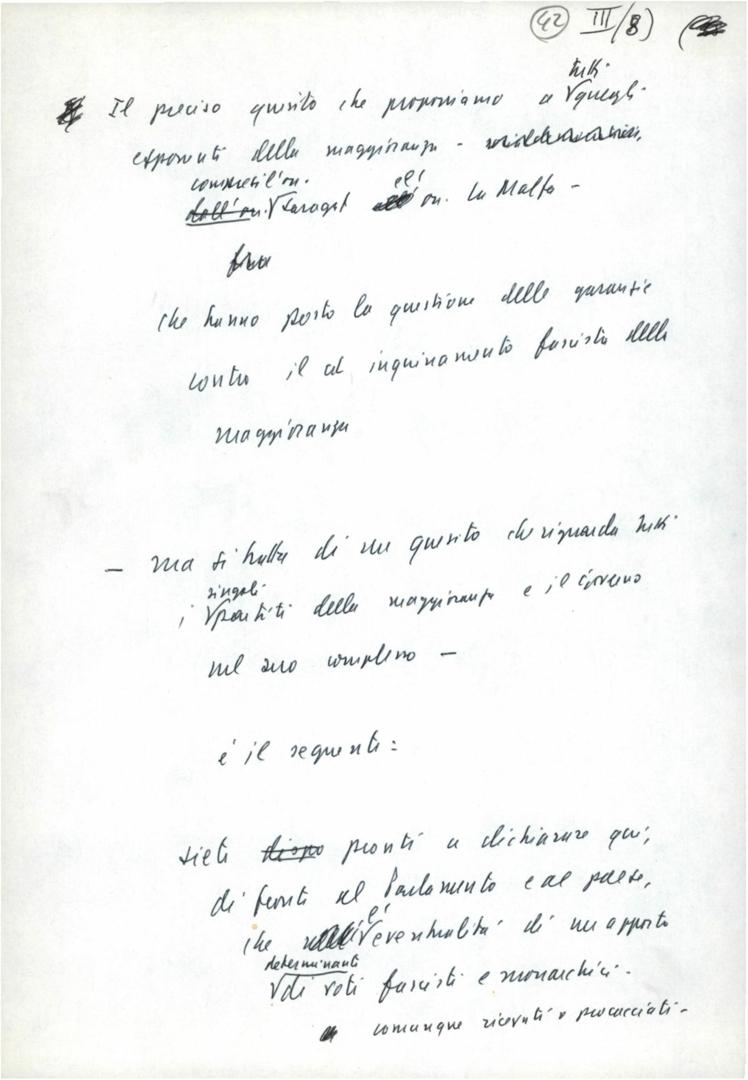 42 III/8)
tutti
Il preciso quesito che proponiamo a √quegli
esponenti della maggioranza -
compresi l'on. e l'
dall'on. √Saragat on. La Malfa -
che hanno posto la questione delle garanzie
contro il al inquinamento fascista della
maggioranza
— ma si tratta di un quesito che riguarda tutti
singoli
i √partiti della maggioranza e il Governo
nel suo complesso —
è il seguente:
siete dispo pronti a dichiarare qui,
di fronte al Parlamento e al paese,
l'
che √eventualità di un apporto
determinante
√di voti fascisti e monarchici -
comunque ricevuti o procacciati -